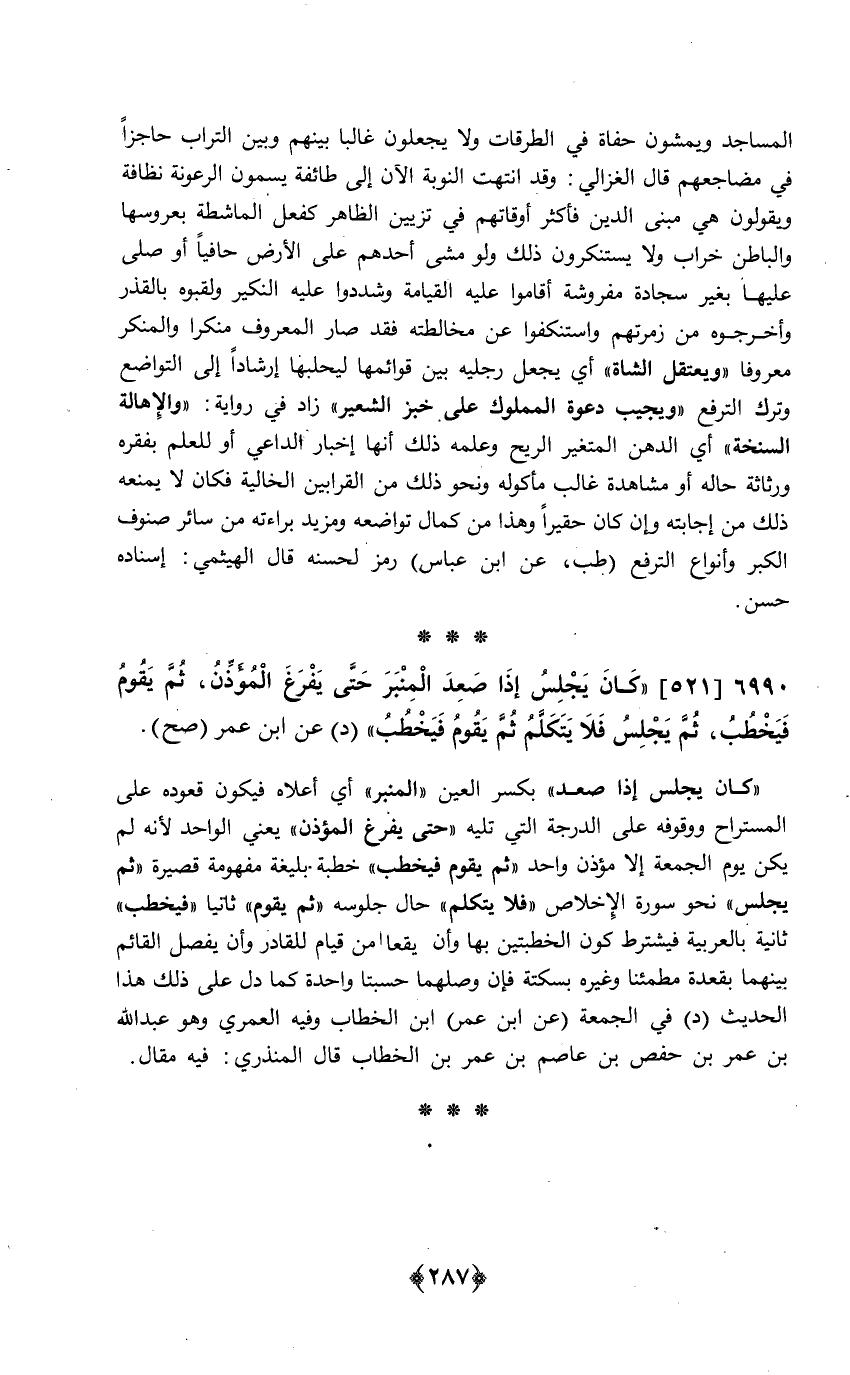 المساجد ويمشون حفاة في الطرقات ولا يجعلون غالبا بينهم وبين التراب حاجزاً
في مضاجعهم قال الغزالي: وقد انتهت النوبة الآن إلى طائفة يسمون الرعونة نظافة
ويقولون هي مبنى الدين فأكثر أوقاتهم في تزيين الظاهر كفعل الماشطة بعروسها
والباطن خراب ولا يستنكرون ذلك ولو مشى أحدهم على الأرض حافياً أو صلى
عليهـا بغير سجادة مفروشة أقاموا عليه القيامة وشددوا عليه النكير ولقبوه بالقذر
وأخـرجـوه من زمرتهم واستنكفوا عن مخالطته فقد صار المعروف منكرا والمنكر
معروفا «ويعتقل الشاة» أي يجعل رجليه بين قوائمها ليحلبها إرشاداً إلى التواضع
وترك الترفع «ويجيب دعوة المملوك على خبز الشعير» زاد في رواية: «والإهالة
السنخة» أي الدهن المتغير الريح وعلمه ذلك أنها إخبار الداعي أو للعلم بفقره
ورثاثة حاله أو مشاهدة غالب مأكوله ونحو ذلك من القرابين الخالية فكان لا يمنعه
ذلك من إجابته وإن كان حقيراً وهذا من كمال تواضعه ومزيد براءته من سائر صنوف
الكبر وأنواع الترفع (طب، عن ابن عباس) رمز لحسنه قال الهيثمي: إسناده
حسن.
* * *
٦٩٩٠ [٥٢١] «كَـانَ يَجْلِسُ إِذَا صَعِدَ الْمِنْبَرَ حَتَّى يَفْرَغَ الْمُؤَذِّنُ، ثُمَّ يَقُومُ
فَيَخْطُبُ، ثُمَّ يَجْلِسُ فَلَا يَتَكَلَّمُ ثُمَّ يَقُومُ فَيَخْطُبُ» (د) عن ابن عمر (صح).
«كـان يجلس إذا صعـد» بكسر العين «المنبر» أي أعلاه فيكون قعوده على
المستراح ووقوفه على الدرجة التي تليه «حتى يفرغ المؤذن» يعني الواحد لأنه لم
يكن يوم الجمعة إلا مؤذن واحد «ثم يقوم فيخطب» خطبة بليغة مفهومة قصيرة «ثم
يجلس» نحو سورة الإخلاص «فلا يتكلم» حال جلوسه «ثم يقوم» ثانيا «فيخطب»
ثانية بالعربية فيشترط كون الخطبتين بها وأن يقعا من قيام للقادر وأن يفصل القائم
بينهما بقعدة مطمئنا وغيره بسكتة فإن وصلهما حسبتا واحدة كما دل على ذلك هذا
الحديث (د) في الجمعة (عن ابن عمر) ابن الخطاب وفيه العمري وهو عبدالله
بن عمر بن حفص بن عاصم بن عمر بن الخطاب قال المنذري: فيه مقال.
* * *
﴿٢٨٧﴾